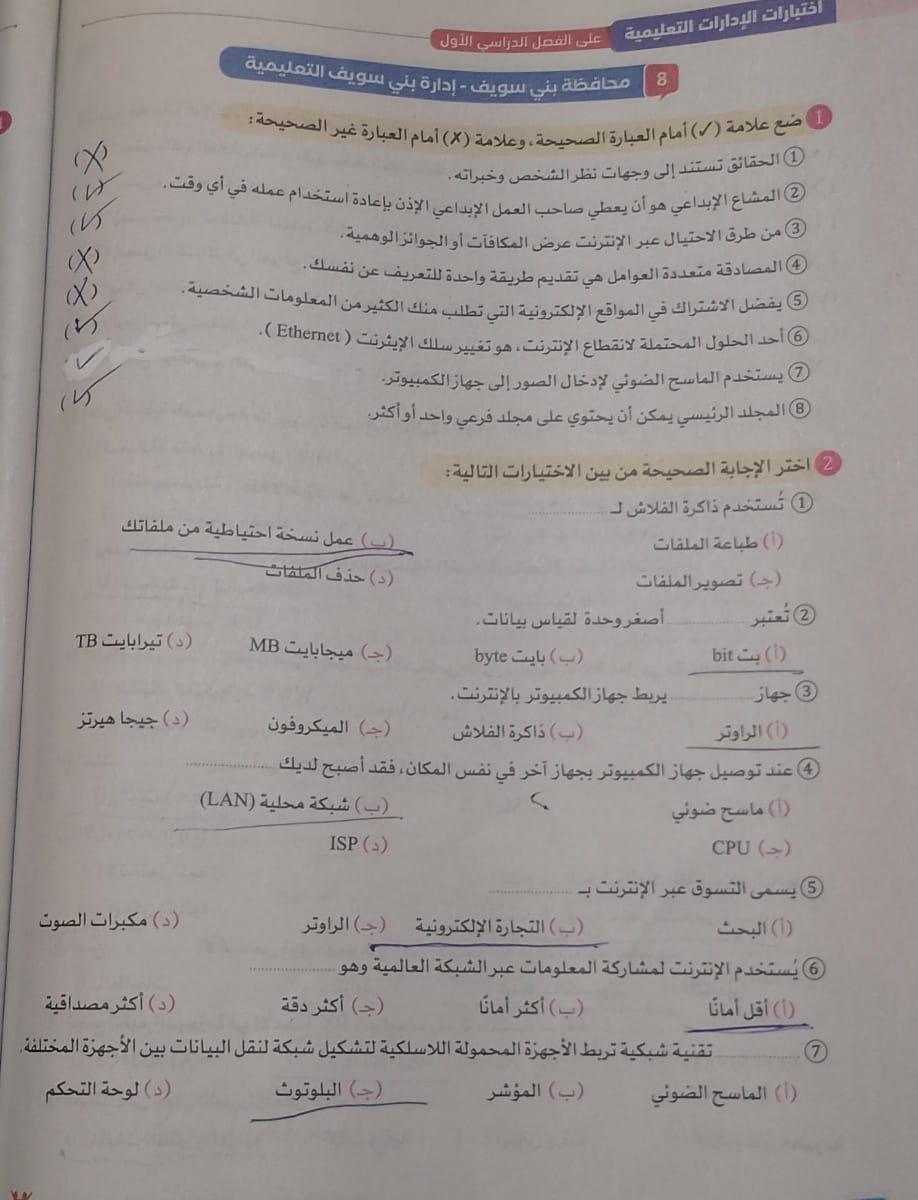 اختبارات الإدارات التعليمية
على الفصل الدراسي الأول
8 محافظة بني سويف - إدارة بني سويف التعليمية
1 ضع علامة (✓) أمام العبارة الصحيحة، وعلامة (✗) أمام العبارة غير الصحيحة:
① الحقائق تستند إلى وجهات نظر الشخص وخبراته. (X)
② المشاع الإبداعي هو أن يعطي صاحب العمل الإبداعي الإذن بإعادة استخدام عمله في أي وقت. (✓)
③ من طرق الاحتيال عبر الإنترنت عرض المكافآت أو الجوائز الوهمية. (✓)
④ المصادقة متعددة العوامل هي تقديم طريقة واحدة للتعريف عن نفسك. (X)
⑤ يفضل الاشتراك في المواقع الإلكترونية التي تطلب منك الكثير من المعلومات الشخصية. (X)
⑥ أحد الحلول المحتملة لانقطاع الإنترنت، هو تغيير سلك الإيثرنت (Ethernet). (✓)
⑦ يستخدم الماسح الضوئي لإدخال الصور إلى جهاز الكمبيوتر. ✓
⑧ المجلد الرئيسي يمكن أن يحتوي على مجلد فرعي واحد أو أكثر. (✓)
2 اختر الإجابة الصحيحة من بين الاختيارات التالية:
① تُستخدم ذاكرة الفلاش لـ ...............
(أ) طباعة الملفات (ب) عمل نسخة احتياطية من ملفاتك
(جـ) تصوير الملفات (د) حذف الملفات
② تُعتبر ............... أصغر وحدة لقياس بيانات.
(أ) بت bit (ب) بايت byte (جـ) ميجابايت MB (د) تيرابايت TB
③ جهاز ............... يربط جهاز الكمبيوتر بالإنترنت.
(أ) الراوتر (ب) ذاكرة الفلاش (جـ) الميكروفون (د) جيجا هيرتز
④ عند توصيل جهاز الكمبيوتر بجهاز آخر في نفس المكان، فقد أصبح لديك ...............
(أ) ماسح ضوئي (ب) شبكة محلية (LAN)
(جـ) CPU (د) ISP
⑤ يسمى التسوق عبر الإنترنت بـ ...............
(أ) البحث (ب) التجارة الإلكترونية (جـ) الراوتر (د) مكبرات الصوت
⑥ يُستخدم الإنترنت لمشاركة المعلومات عبر الشبكة العالمية وهو ...............
(أ) أقل أمانًا (ب) أكثر أمانًا (جـ) أكثر دقة (د) أكثر مصداقية
⑦ ............... تقنية شبكية تربط الأجهزة المحمولة اللاسلكية لتشكيل شبكة لنقل البيانات بين الأجهزة المختلفة.
(أ) الماسح الضوئي (ب) المؤشر (جـ) البلوتوث (د) لوحة التحكم